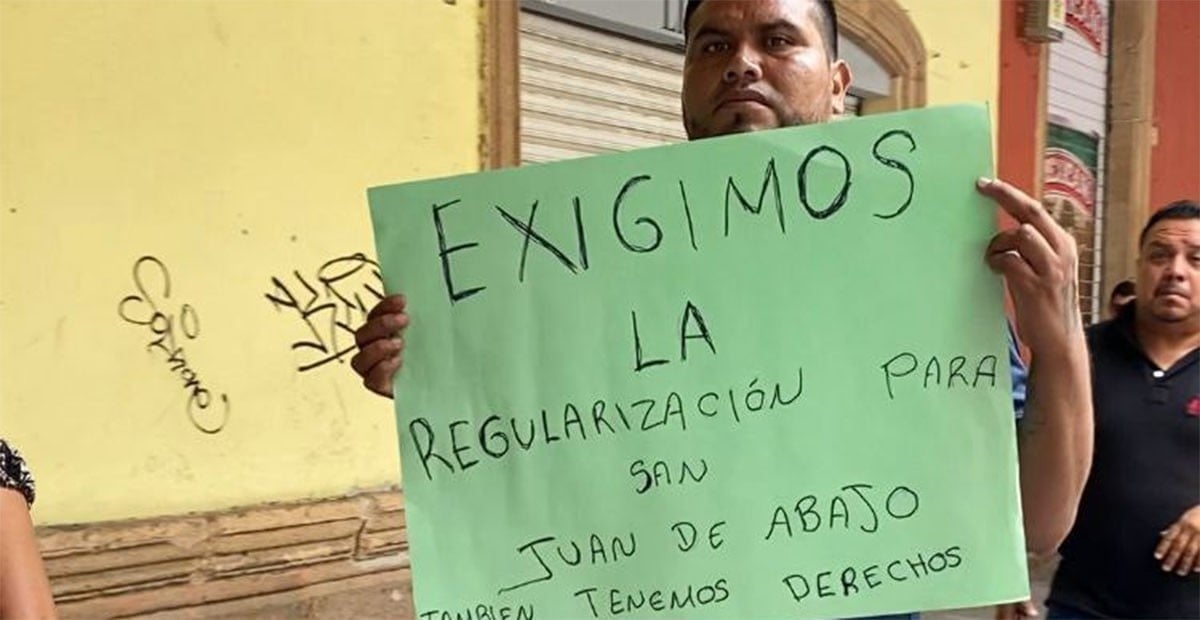 EXIGIMOS
LA
REGULARIZACIÓN PARA
SAN
JUAN DE ABAJO
TAMBIEN TENEMOS DERECHOS